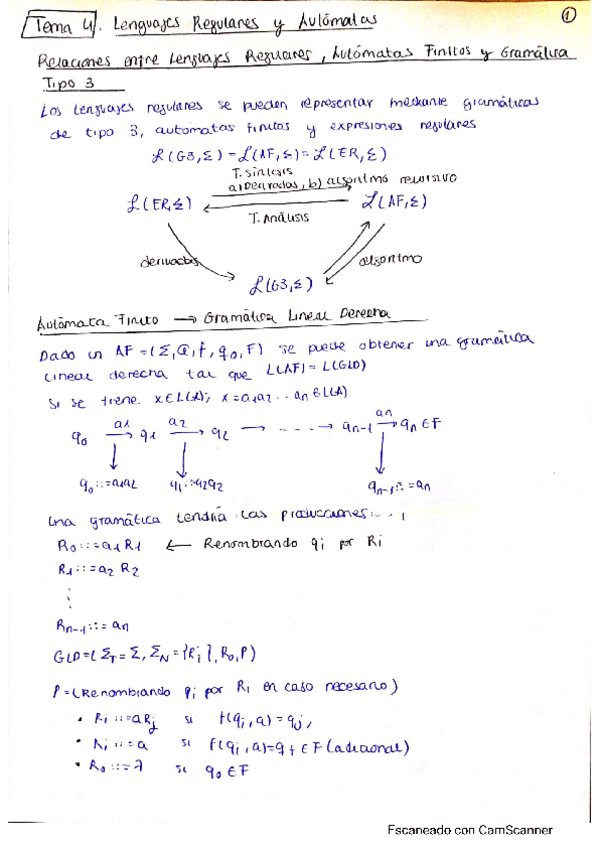 Tema 4. Lenguajes Regulares y Autómatas
①
Relaciones entre Lenguajes Regulares, Autómatas Finitos y Gramática
Tipo 3
Los lenguajes regulares se pueden representar mediante gramáticas
de tipo 3, automatas finitos y expresiones regulares
L(G3,Σ) = L(AF,Σ) = L(ER,Σ)
T. Síntesis
a) Derivadas, b) algoritmo recursivo
L(ER,Σ) L(AF,Σ)
T. Análisis
derivadas algoritmo
L(G3,Σ)
Autómata Finito → Gramática Lineal Derecha
Dado un AF = (Σ,Q,f,q0,F) se puede obtener una gramática
lineal derecha tal que L(AF) = L(GLD)
Si se tiene x∈L(A); x=a1a2...an∈L(A)
q0 a1→ q1 a2→ q2 → - - - - → qn-1 an→ qn∈F
q0::=a1q2 q1::=a2q2 qn-1::=an
Una gramática tendría las producciones...
R0::=a1R1 ← Renombrando qi por Ri
R1::=a2 R2
⋮
Rn-1::=an
GLD=(ΣT=Σ, ΣN={Ri}, R0, P)
P=(Renombrando qi por Ri en caso necesario)
• Ri::=aRj si f(qi,a)=qj,
• Ri::=a si f(qi,a)=qf∈F (adicional)
• R0::=λ si q0∈F
Escaneado con CamScanner